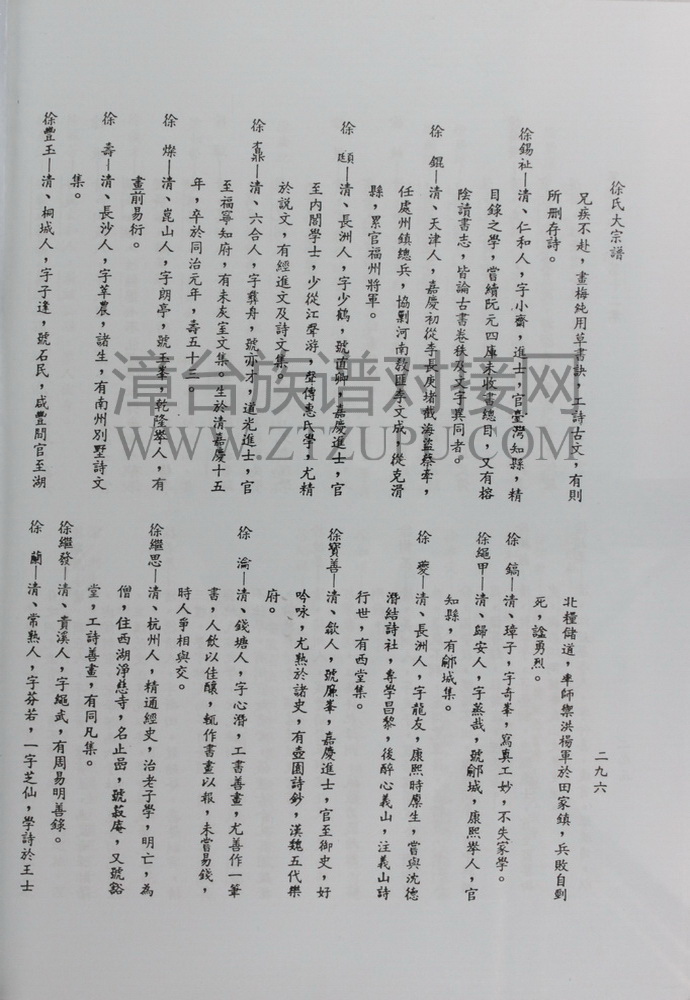 徐氏大宗譜
兄疾不赴，畫梅純用草書訣，工詩古文，有則
所刪存詩。
徐錫祉—清、仁和人，字小齋，進士，官臺灣知縣，精
目錄之學，嘗續阮元四庫未收書總目，又有榕
陰讀書志，皆論古書卷秩及文字異同者。
徐　錕—清、天津人，嘉慶初從李長庚堵截海盜蔡牽，
任處州鎮總兵，協剿河南教匪李文成，從克滑
縣，累官福州將軍。
徐　頲—清、長洲人，字少鶴，號直卿，嘉慶進士，官
至內閣學士，少從江聲游，聲傳惠氏學，尤精
於說文，有經進文及詩文集。
徐　鼒—清、六合人，字彝舟，號亦才，道光進士，官
至福寧知府，有未灰室文集。生於清嘉慶十五
年，卒於同治元年，壽五十三。
徐　燦—清、崑山人，字朗亭，號玉峯，乾隆舉人，有
畫前易衍。
徐　壽—清、長沙人，字莘農，諸生，有南州別墅詩文
集。
徐豐玉—清、桐城人，字子逢，號石民，咸豐間官至湖
二九六
北糧儲道，率師禦洪楊軍於田家鎮，兵敗自剄
死，諡勇烈。
徐　鎬—清、璋子，字奇峯，寫真工妙，不失家學。
徐繩甲—清、歸安人，字燕哉，號郇城，康熙舉人，官
知縣，有郇城集。
徐　夔—清、長洲人，字龍友，康熙時廩生，嘗與沈德
潛結詩社，專學昌黎，後醉心義山，注義山詩
行世，有西堂集。
徐寶善—清、歙人，號廉峯，嘉慶進士，官至御史，好
吟咏，尤熟於諸史，有壺園詩鈔，漢魏五代樂
府。
徐　瀹—清、錢塘人，字心潛，工書善畫，尤善作一筆
書，人飲以佳釀，輒作書畫以報，未嘗易錢，
時人爭相與交。
徐繼思—清、杭州人，精通經史，治老子學，明亡，為
僧，住西湖淨慈寺，名止嵒，號菽庵，又號豁
堂，工詩善畫，有同凡集。
徐繼發—清、貴溪人，字繩武，有周易明善錄。
徐　蘭—清、常熟人，字芬若，一字芝仙，學詩於王士
漳台族谱对接网
WWW.ZTZUPU.COM